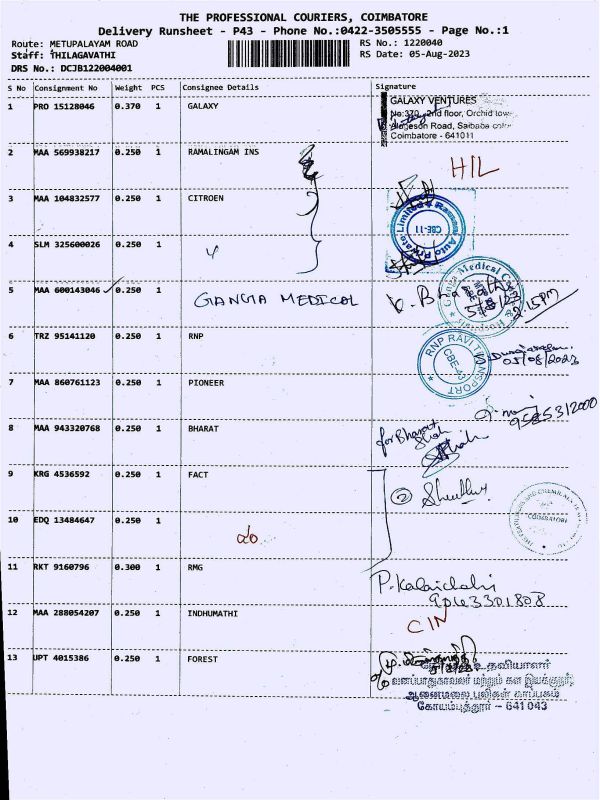 THE PROFESSIONAL COURIERS, COIMBATORE
Delivery Runsheet - P43 - Phone No.:0422-3505555 - Page No.:1
Route: METUPALAYAM ROAD
Staff: THILAGAVATHI
DRS No.: DCJB122004001
RS No.: 1220040
RS Date: 05-Aug-2023
S No Consignment No Weight PCS Consignee Details Signature
1 PRO 15128046 0.370 1 GALAXY
GALAXY VENTURES
No:370, 2nd floor, Orchid tow
Alagesan Road, Saibaba colo
Coimbatore - 641011
2 MAA 569938217 0.250 1 RAMALINGAM INS
H/L
3 MAA 104832577 0.250 1 CITROEN
Private Limited
Auto
CBE-11
4 SLM 325600026 0.250 1
5 MAA 600143046 0.250 1 GANGA MEDICAL
Ganga Medical
Hospitals
5/8/23
2.15PM
6 TRZ 95141120 0.250 1 RNP
RNP RAVI TRANSPORT
CBE-43
05/08/2023
7 MAA 860761123 0.250 1 PIONEER
8 MAA 943320768 0.250 1 BHARAT
for Bharat
Shah
9 KRG 4536592 0.250 1 FACT
②
COIMBATORE
10 EDQ 13484647 0.250 1
do
11 RKT 9160796 0.300 1 RMG
P. Kalaichelvi
12 MAA 288054207 0.250 1 INDHUMATHI
CIN
13 UPT 4015386 0.250 1 FOREST
வனப்பாதுகாவலர் மற்றும் கள இயக்குநர்,
ஆனைமலை புலிகள் காப்பகம்
கோயம்புத்தூர் – 641 043